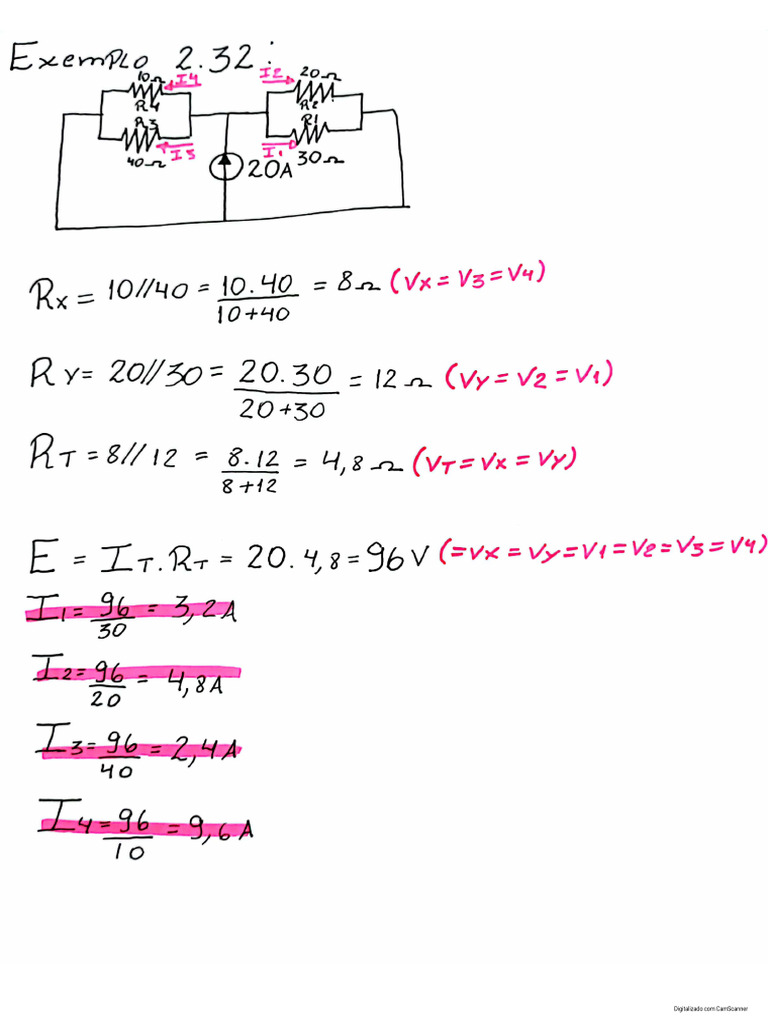 Exemplo 2.32:
10Ω I4 I2 20Ω
R4 R2
R3 R1
40Ω I3 20A I1 30Ω
Rx = 10//40 = 10.40 / 10+40 = 8Ω (Vx = V3 = V4)
RY = 20//30 = 20.30 / 20+30 = 12Ω (Vy = V2 = V1)
RT = 8//12 = 8.12 / 8+12 = 4,8Ω (VT = Vx = Vy)
E = IT.RT = 20.4,8 = 96V (=Vx = Vy = V1 = V2 = V3 = V4)
I1 = 96/30 = 3,2A
I2 = 96/20 = 4,8A
I3 = 96/40 = 2,4A
I4 = 96/10 = 9,6A
Digitalizado com CamScanner